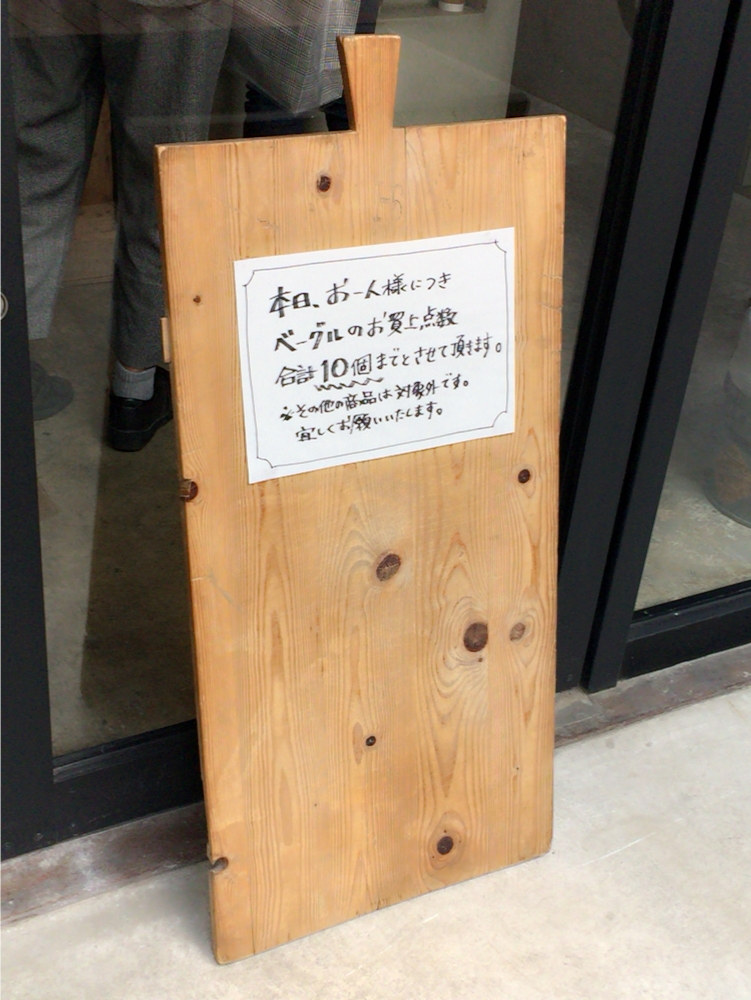 本日、お一人様につき
ベーグルのお買上点数
合計10個までとさせて頂きます。
※その他の商品は対象外です。
宜しくお願いいたします。